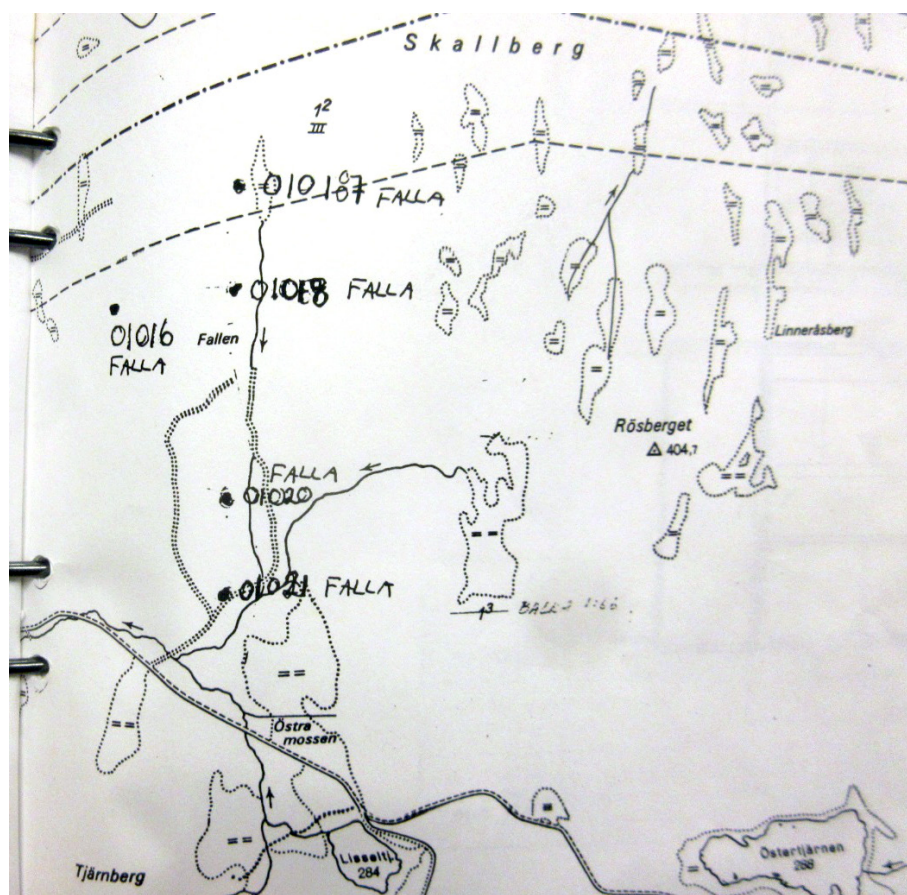 Skallberg
1²
III
FALLA
01018 FALLA
01016
FALLA
Fallen
Linneråsberg
Rösberget
404,7
FALLA
01020
01021 FALLA
1³
Östra
mossen
Lisseltj
284
Östertjärnen
288
Tjärnberg